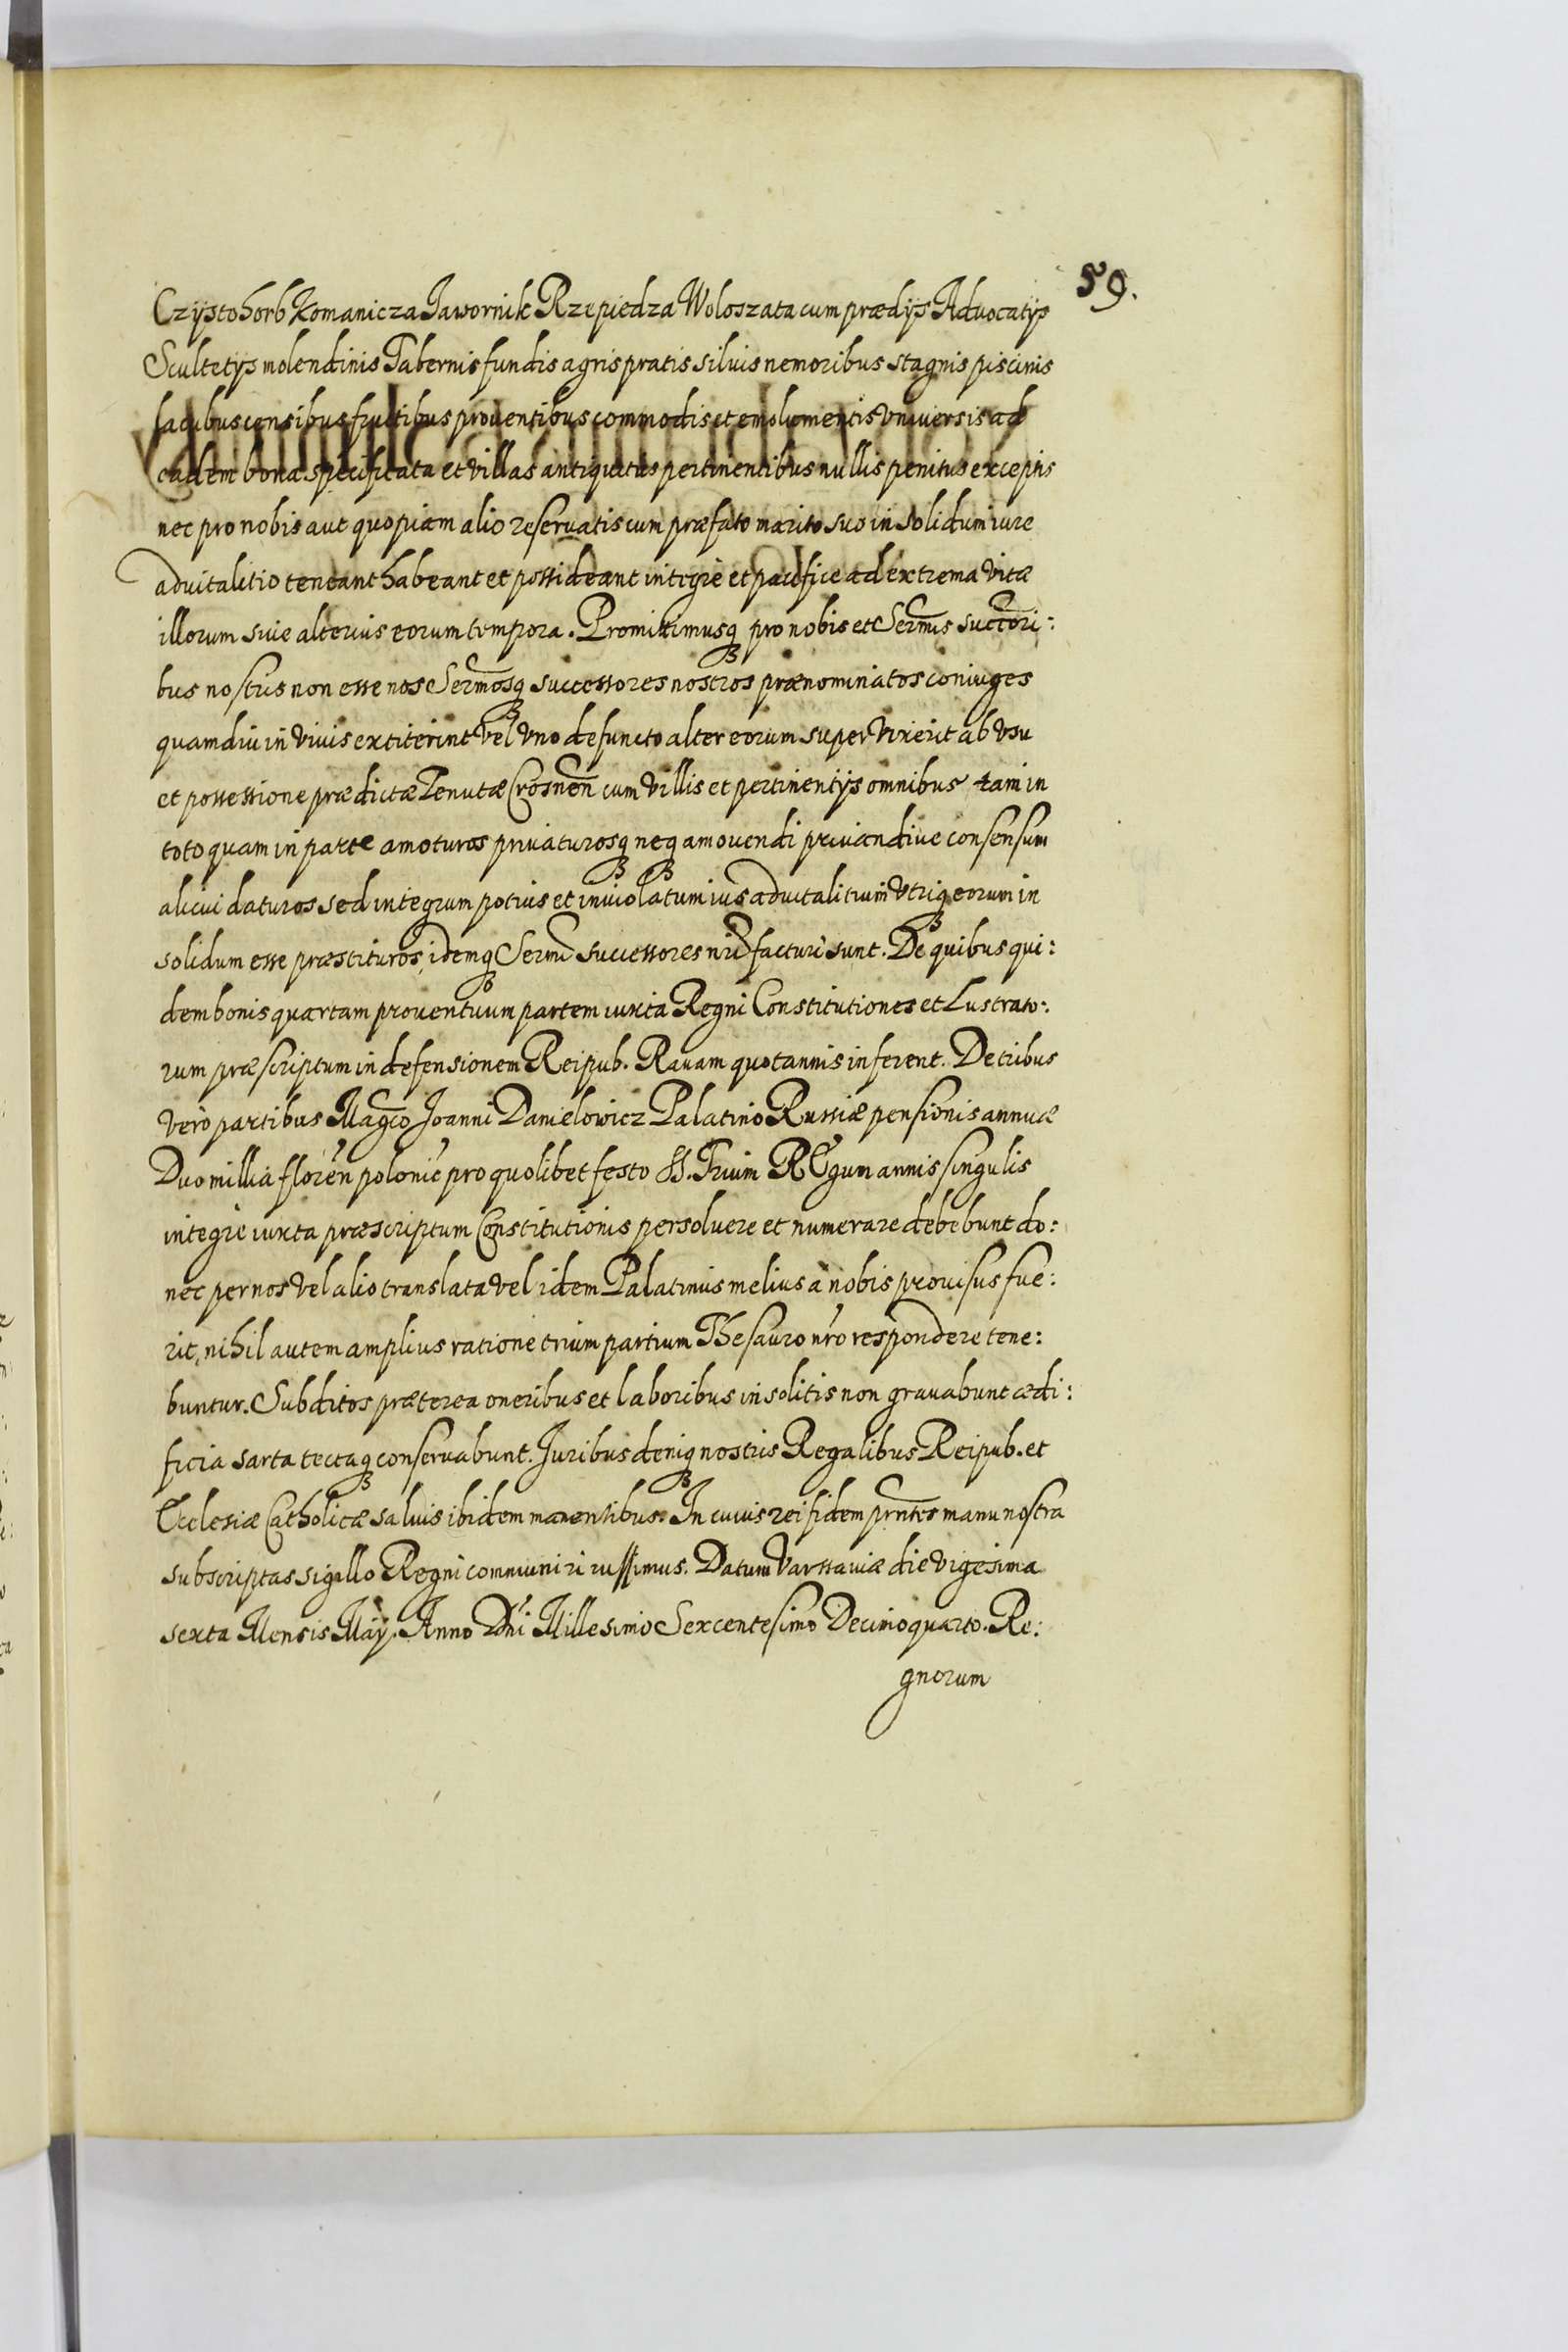 59.
Czÿstohorb Komanicza Jawornik Rzepiedza Woloszata cum prædijs Aduocatijs
Scultetijs molendinis Tabernis fundis agris pratis siluis nemoribus stagnis piscinis
lacubus censibus fructibus prouentibus commodis et emolumentis Vniuersis ad
eadem bona specificata et villas antiquitus pertinentibus nullis penitus exceptis
nec pro nobis aut quopiam alio reseruatis cum præfato marito suo in solidum iure
aduitalitio teneant habeant et possideant integrè et pacifice ad extrema vitæ
illorum siue alterius eorum tempora. Promittimusq pro nobis et Serm̃is succori:
bus nostris non esse nos Serm̃osq successores nostros prænominatos coniuges
quamdiu in viuis extiterint vel vno defuncto alter eorum superuixerit ab vsu
et possessione prædictæ Tenutæ Crosneñ cum villis et pertinentijs omnibus tam in
toto quam in parte amoturos priuaturosq neq amouendi priuandiue consensum
alicui daturos sed integrum potius et inuiolatum ius aduitalitium vtriq eorum in
solidum esse præstituros, idemq Serm̃i successores nr̃i facturi sunt. De quibus qui:
dem bonis quartam prouentuum partem iuxta Regni Constitutiones et Lustrato:
rum præscriptum in defensionem Reipub. Rauam quotannis inferent. De tribus
verò partibus Magco Joanni Danielowicz Palatino Russiæ pensionis annuæ
Duo millia floreñ polonic̃ pro quolibet festo SS. Trium REgum annis singulis
integrè iuxta præscriptum Constitutionis persoluere et numerare debebunt do:
nec per nos vel alio translata vel idem Palatinus melius à nobis prouisus fue:
rit, nihil autem amplius ratione trium partium Thesauro nr̃o respondere tene:
buntur. Subditos præterea oneribus et laboribus insolitis non grauabunt ædi:
ficia sarta tectaq conseruabunt. Juribus deniq nostris Regalibus Reipub. et
Ecclesiæ Catholicæ saluis ibidem manentibus. In cuius rei fidem prñtes manu nostra
subscriptas sigillo Regni communiri iussimus. Datum Varssauiæ die vigesima
sexta Mensis Maÿ. Anno Dñi Millesimo Sexcentesimo Decimoquarto. Re:
gnorum